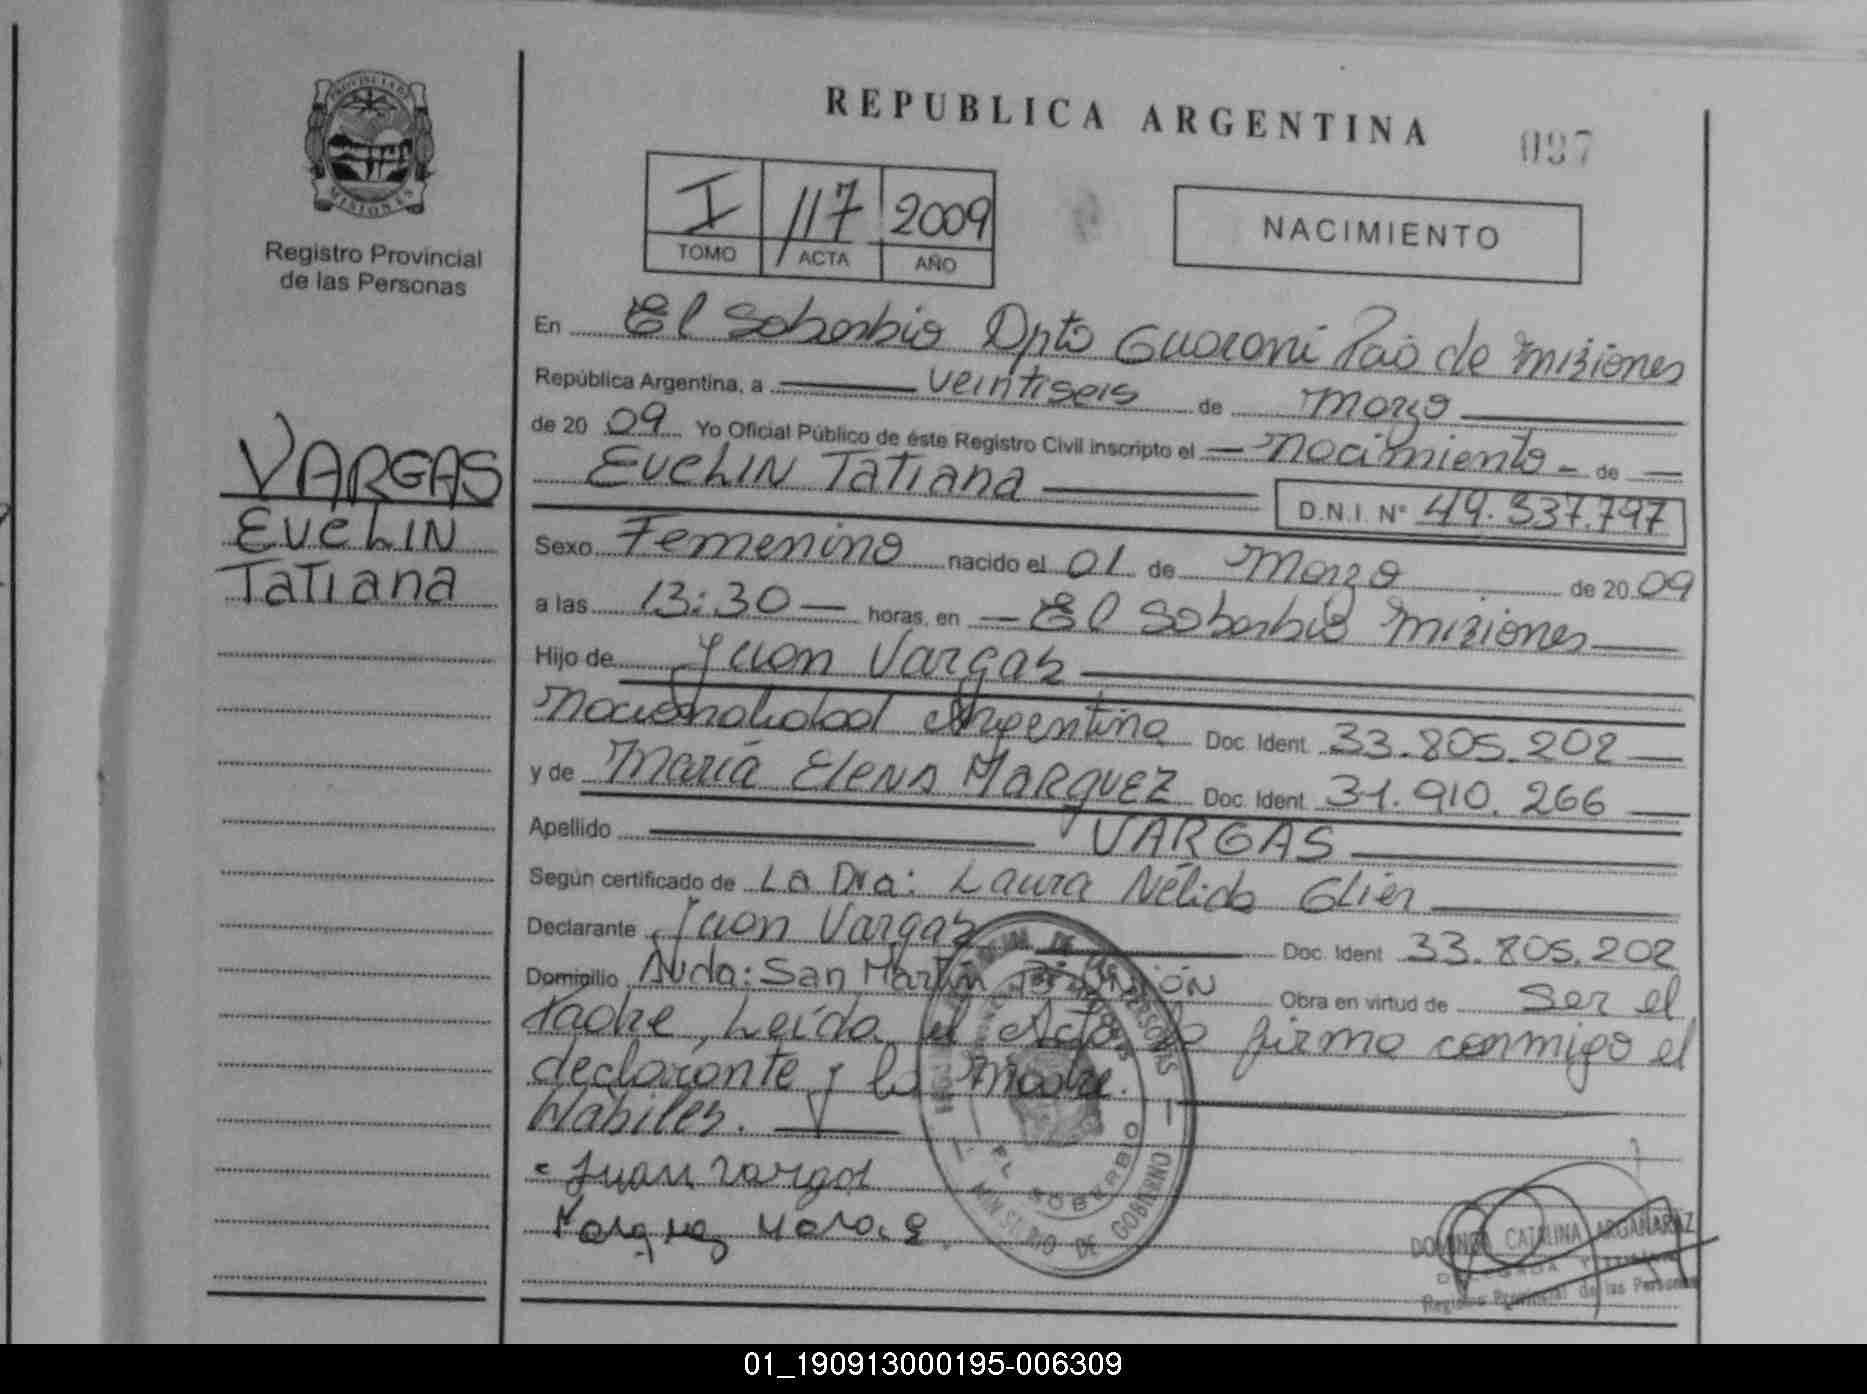 PROVINCIA DE
MISIONES
Registro Provincial
de las Personas
VARGAS
Evelin
Tatiana
REPUBLICA ARGENTINA
097
I 117 2009
TOMO ACTA AÑO
NACIMIENTO
En El Soberbio Dpto Guarani Pcia de Misiones
República Argentina, a veintiseis de Marzo
de 20 09 Yo Oficial Público de éste Registro Civil inscripto el nacimiento de
Evelin Tatiana
D.N.I. Nº 49.337.797
Sexo Femenino nacido el 01 de Marzo de 20 09
a las 13:30 horas, en El Soberbio Misiones
Hijo de Juan Vargas
Nacionalidad Argentina Doc. Ident. 33.805.202
y de María Elena MARQUEZ Doc. Ident. 31.910.266
Apellido VARGAS
Según certificado de La Dra: Laura Nélida Glier
Declarante Juan Vargas Doc. Ident. 33.805.202
Domicilio Avda: San Martín Obra en virtud de Ser el
Padre, Leída el Acta la firma conmigo el
declarante y la Madre.
Hábiles.
Juan Vargas
Marquez Maria E.
EL SOBERBIO
MINISTERIO DE GOBIERNO
CATALINA ARGAÑARAZ
Registro Provincial de las Personas
01_190913000195-006309